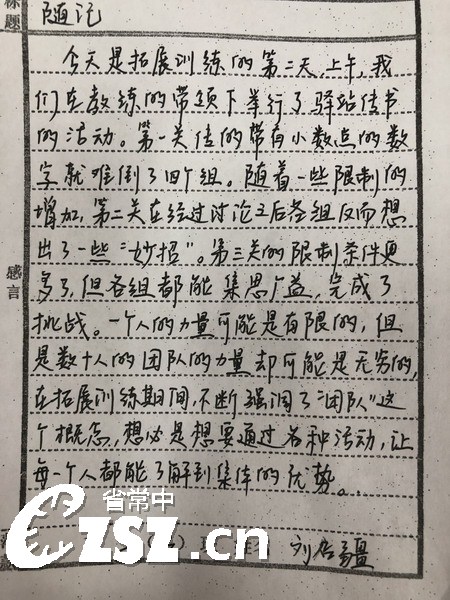 标题
随记
今天是拓展训练的第二天,上午,我
们在教练的带领下举行了驿站传书
的活动。第一关传的带有小数点的数
字就难倒了四个组。随着一些限制的
增加,第二关在经过讨论之后各组反而想
出了一些“妙招”。第三关的限制条件更
多了,但各组都能集思广益,完成了
挑战。一个人的力量可能是有限的,但
是数十人的团队的力量却可能是无穷的,
在拓展训练期间,不断强调了“团队”这
个概念,想必是想要通过各种活动,让
每一个人都能了解到集体的优势。
感言
省常中
czsz.cn